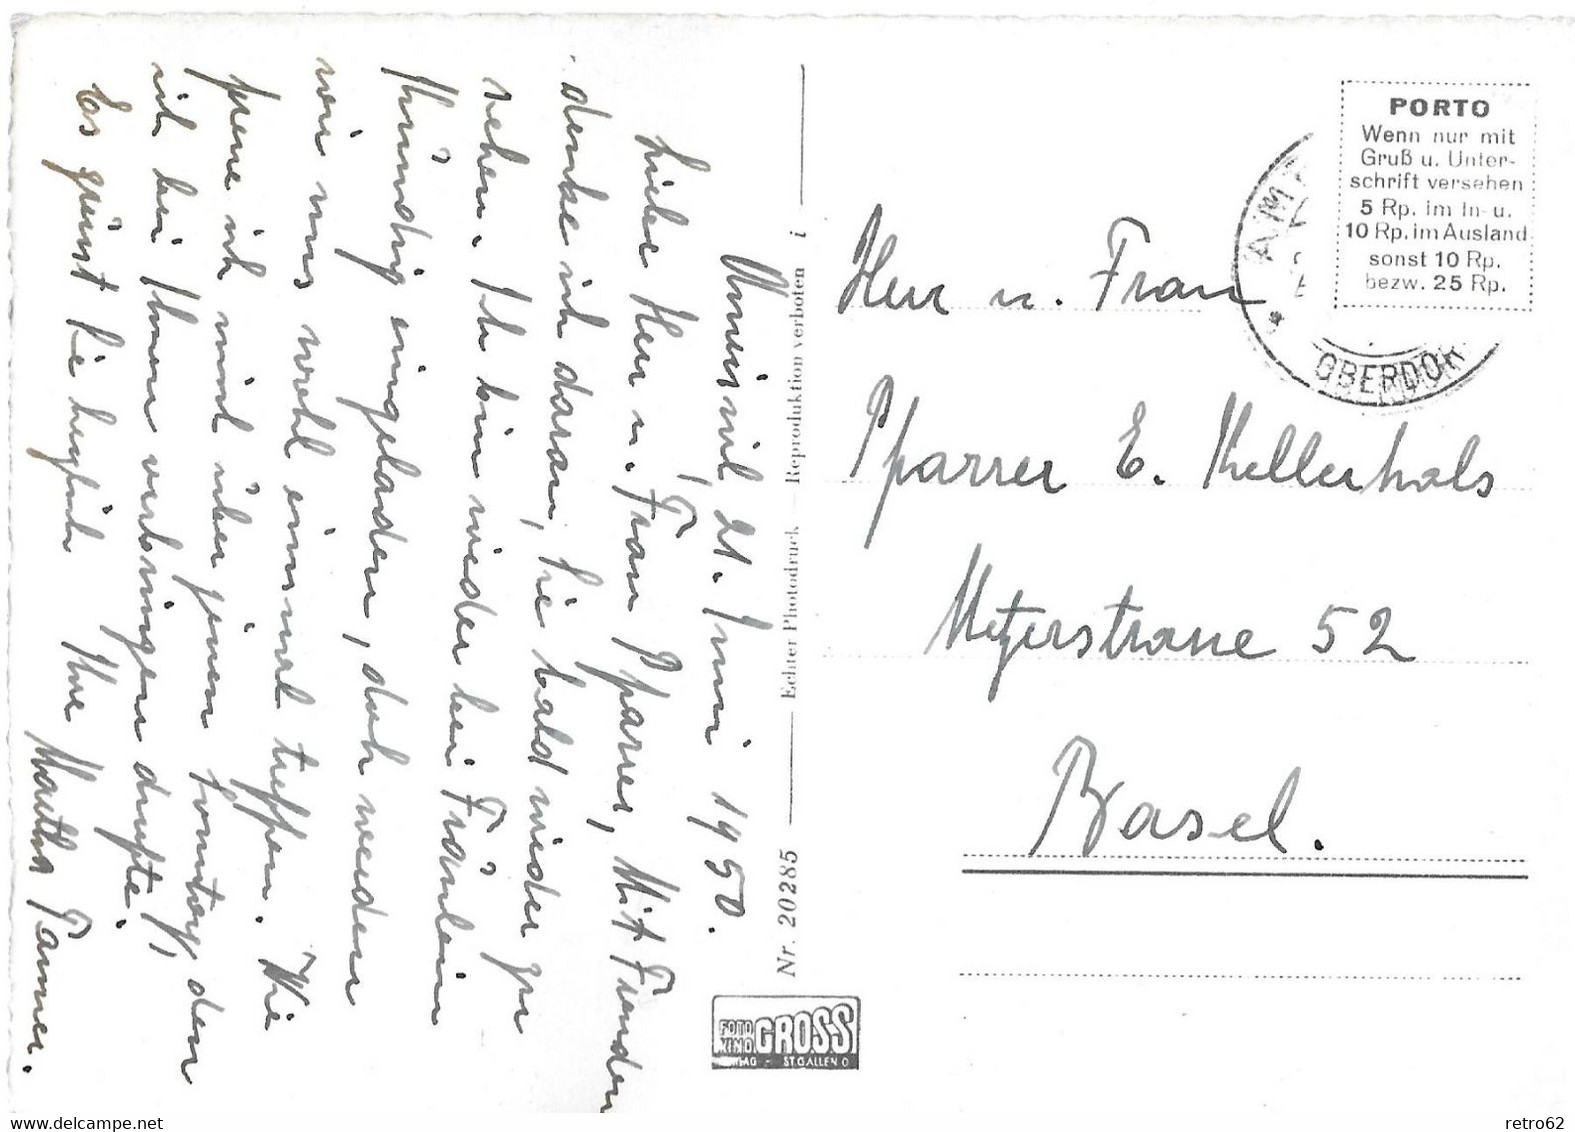 Amriswil, 21. Juni 1950.
Liebe Herr u. Frau Pfarrer, Mit Freuden
denke ich daran, Sie bald wieder zu
sehen. Ich bin wieder bei Fräulein
Kündig eingeladen, doch werden
wir uns wohl einmal treffen. Wie
freue ich mich über jenen Sonntag, den
ich bei Ihnen verbringen durfte!
Es grüsst Sie herzlich Ihre Martha Tanner.
Nr. 20285 Echter Photodruck Reproduktion verboten i
FOTO KINO GROSS
ST.GALLEN O
PORTO
Wenn nur mit
Gruß u. Unter-
schrift versehen
5 Rp. im In- u.
10 Rp. im Ausland
sonst 10 Rp.
bezw. 25 Rp.
OBERDOR
Herr u. Frau
Pfarrer E. Kellerhals
Metzerstrasse 52
Basel.
www.delcampe.net
retro62